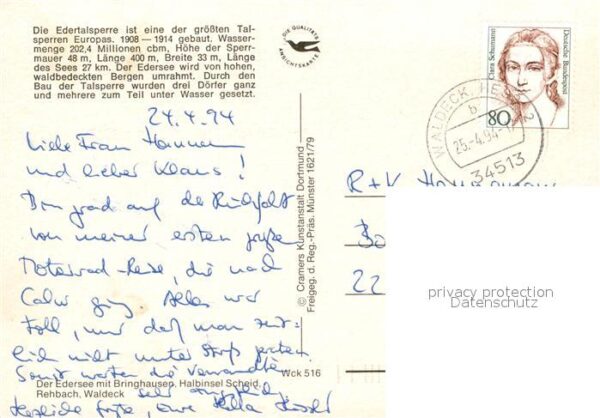 Die Edertalsperre ist eine der größten Tal-
sperren Europas. 1908 — 1914 gebaut. Wasser-
menge 202,4 Millionen cbm, Höhe der Sperr-
mauer 48 m, Länge 400 m, Breite 33 m, Länge
des Sees 27 km. Der Edersee wird von hohen,
waldbedeckten Bergen umrahmt. Durch den
Bau der Talsperre wurden drei Dörfer ganz
und mehrere zum Teil unter Wasser gesetzt.
24.4.94
Liebe Frau
und lieber Klaus!
Bin grad auf der Rückfahrt
von meiner ersten großen
Motorrad-Reise, die nach
ging. Alles war
toll, nur daß man
nicht unter
Sonst waren die Verwandten
sehr
Herzliche Grüße, Eure
Der Edersee mit Bringhausen, Halbinsel Scheid,
Rehbach, Waldeck
Wck 516
© Cramers Kunstanstalt Dortmund
Freigeg. d. Reg.-Präs. Münster 1621/79
DIE QUALITÄTS
ANSICHTSKARTE
Clara Schumann
Deutsche Bundespost
80
WALDECK, HESS
b
25.-4.94-12
34513
R + K
22
privacy protection
Datenschutz